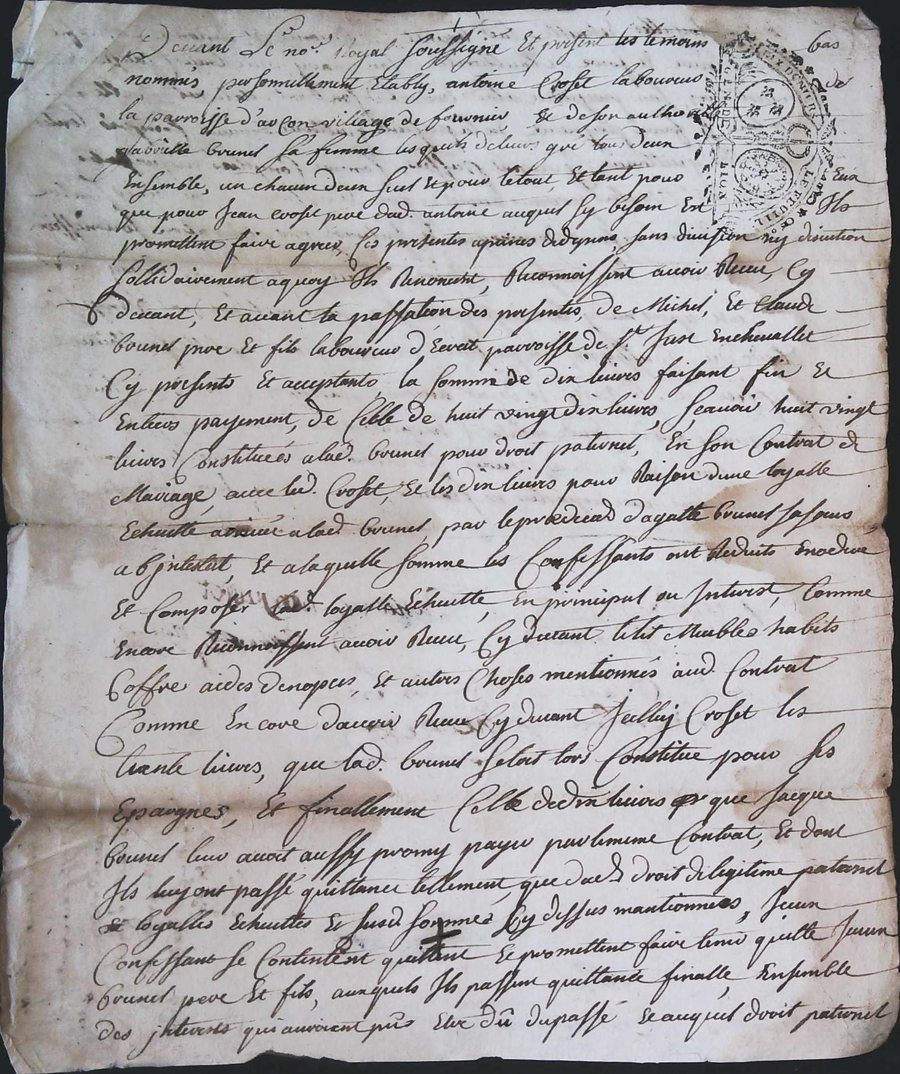 Devant Le no.re Royal soussigné Et présent les temoins bas
nommés, personnellement Etably, antoine Croset laboureur de
la parroisse d'arcon village de fournier Et de son authorité
brunel sa femme lesquels de leurs gré tous deux
Ensemble, un chacun deux seul Et pour le tout, Et tant pour Eux
que pour Jean croset pere dud. antoine auquel sy besoin Est Ils
promettent faire agreer, les présentes apeines sans division ny discution
sollidairement aquoy Ils Renoncent, Reconnoissent avoir Receu, Cy
devant, Et avant la passation des presentes, de Michel, Et Claude
brunel pere Et fils laboureur parroisse de St. Just Enchevallet
Cy presents Et acceptants la somme de dix livres faisant fin Et
Entiers payement, de Celle de huit vingt dix livres, sçavoir huit vingt
livres Constituées alad. brunel pour droit paternel, En son Contrat de
Mariage, avec led. Croset, Et les dix livres pour Raison dune loyalle
Echeutte arrivée alad. brunel, par le prédécéd d'agatte brunel sa soeur
abjntestat, Et alaquelle somme les Confessants ont Reduits
Et Composer lad. loyalle Echeutte, En principal ou Interest, Comme
Encore Reconnoissent avoir Receu, Cy devant le lit Meubles habits
Coffre aides denopces, Et autres Choses mentionnés aud. Contrat
Comme Encore d'avoir Receu Cy devant Croset les
trante livres, que lad. brunel setoit lors Constitue pour ses
Epargnes, Et finallement Celle de dix livres que Jacque
brunel leur avoit aussy promis payer par le meme Contrat, Et dont
Ils luy ont passé quittance tellement, que dud. droit de legitime paternel
loyalles Echeuttes Et susd. sommes Cy dessus mantionnées, Iceux
Confessant se Contentent quittent Et promettent faire tenir quitte Iceux
brunel pere Et fils, auxquels Ils passent quittance finalle, Ensemble
des jnterests qui auroient pus Etre dû du passé Et auquel droit paternel